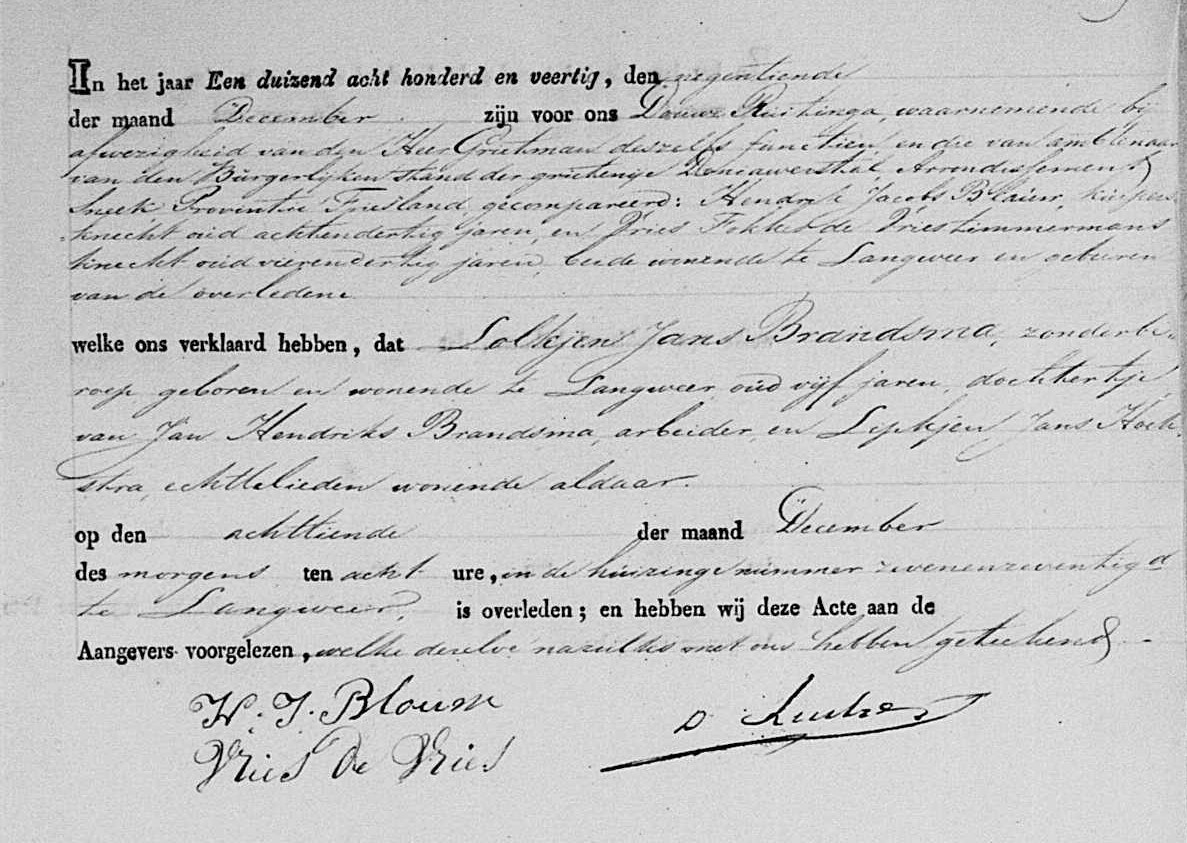 In het jaar Een duizend acht honderd en veertig, den negentiende
der maand December zijn voor ons Douwe Ruitinga, waarnemende bij
afwezigheid van den Heer Grietman deszelfs functien, en die van ambtenaar
van den Burgerlijken stand der grietenije Doniawerstal, Arrondissement
Sneek Provintie Friesland, gecompareerd: Hendrik Jacobs kuipers
knecht oud achtendertig jaren, en Vries Fokkes de Vries timmermans
knecht oud vierendertig jaren, beide wonende te Langweer en geburen
van de overledene
welke ons verklaard hebben, dat Lolkjen Jans Brandsma, zonder be-
roep geboren en wonende te Langweer, oud vijf jaren, dochtertje
van Jan Hendriks Brandsma, arbeider, en Jans Hoek-
stra, echtelieden wonende aldaar.
op den achttiende der maand December
des morgens ten acht ure, in de huizinge nummer zevenenzeventig a
te Langweer, is overleden; en hebben wij deze Acte aan de
Aangevers voorgelezen, welke dezelve nevens met ons hebben geteekend
H. J. Bloum
Vries De Vries
D